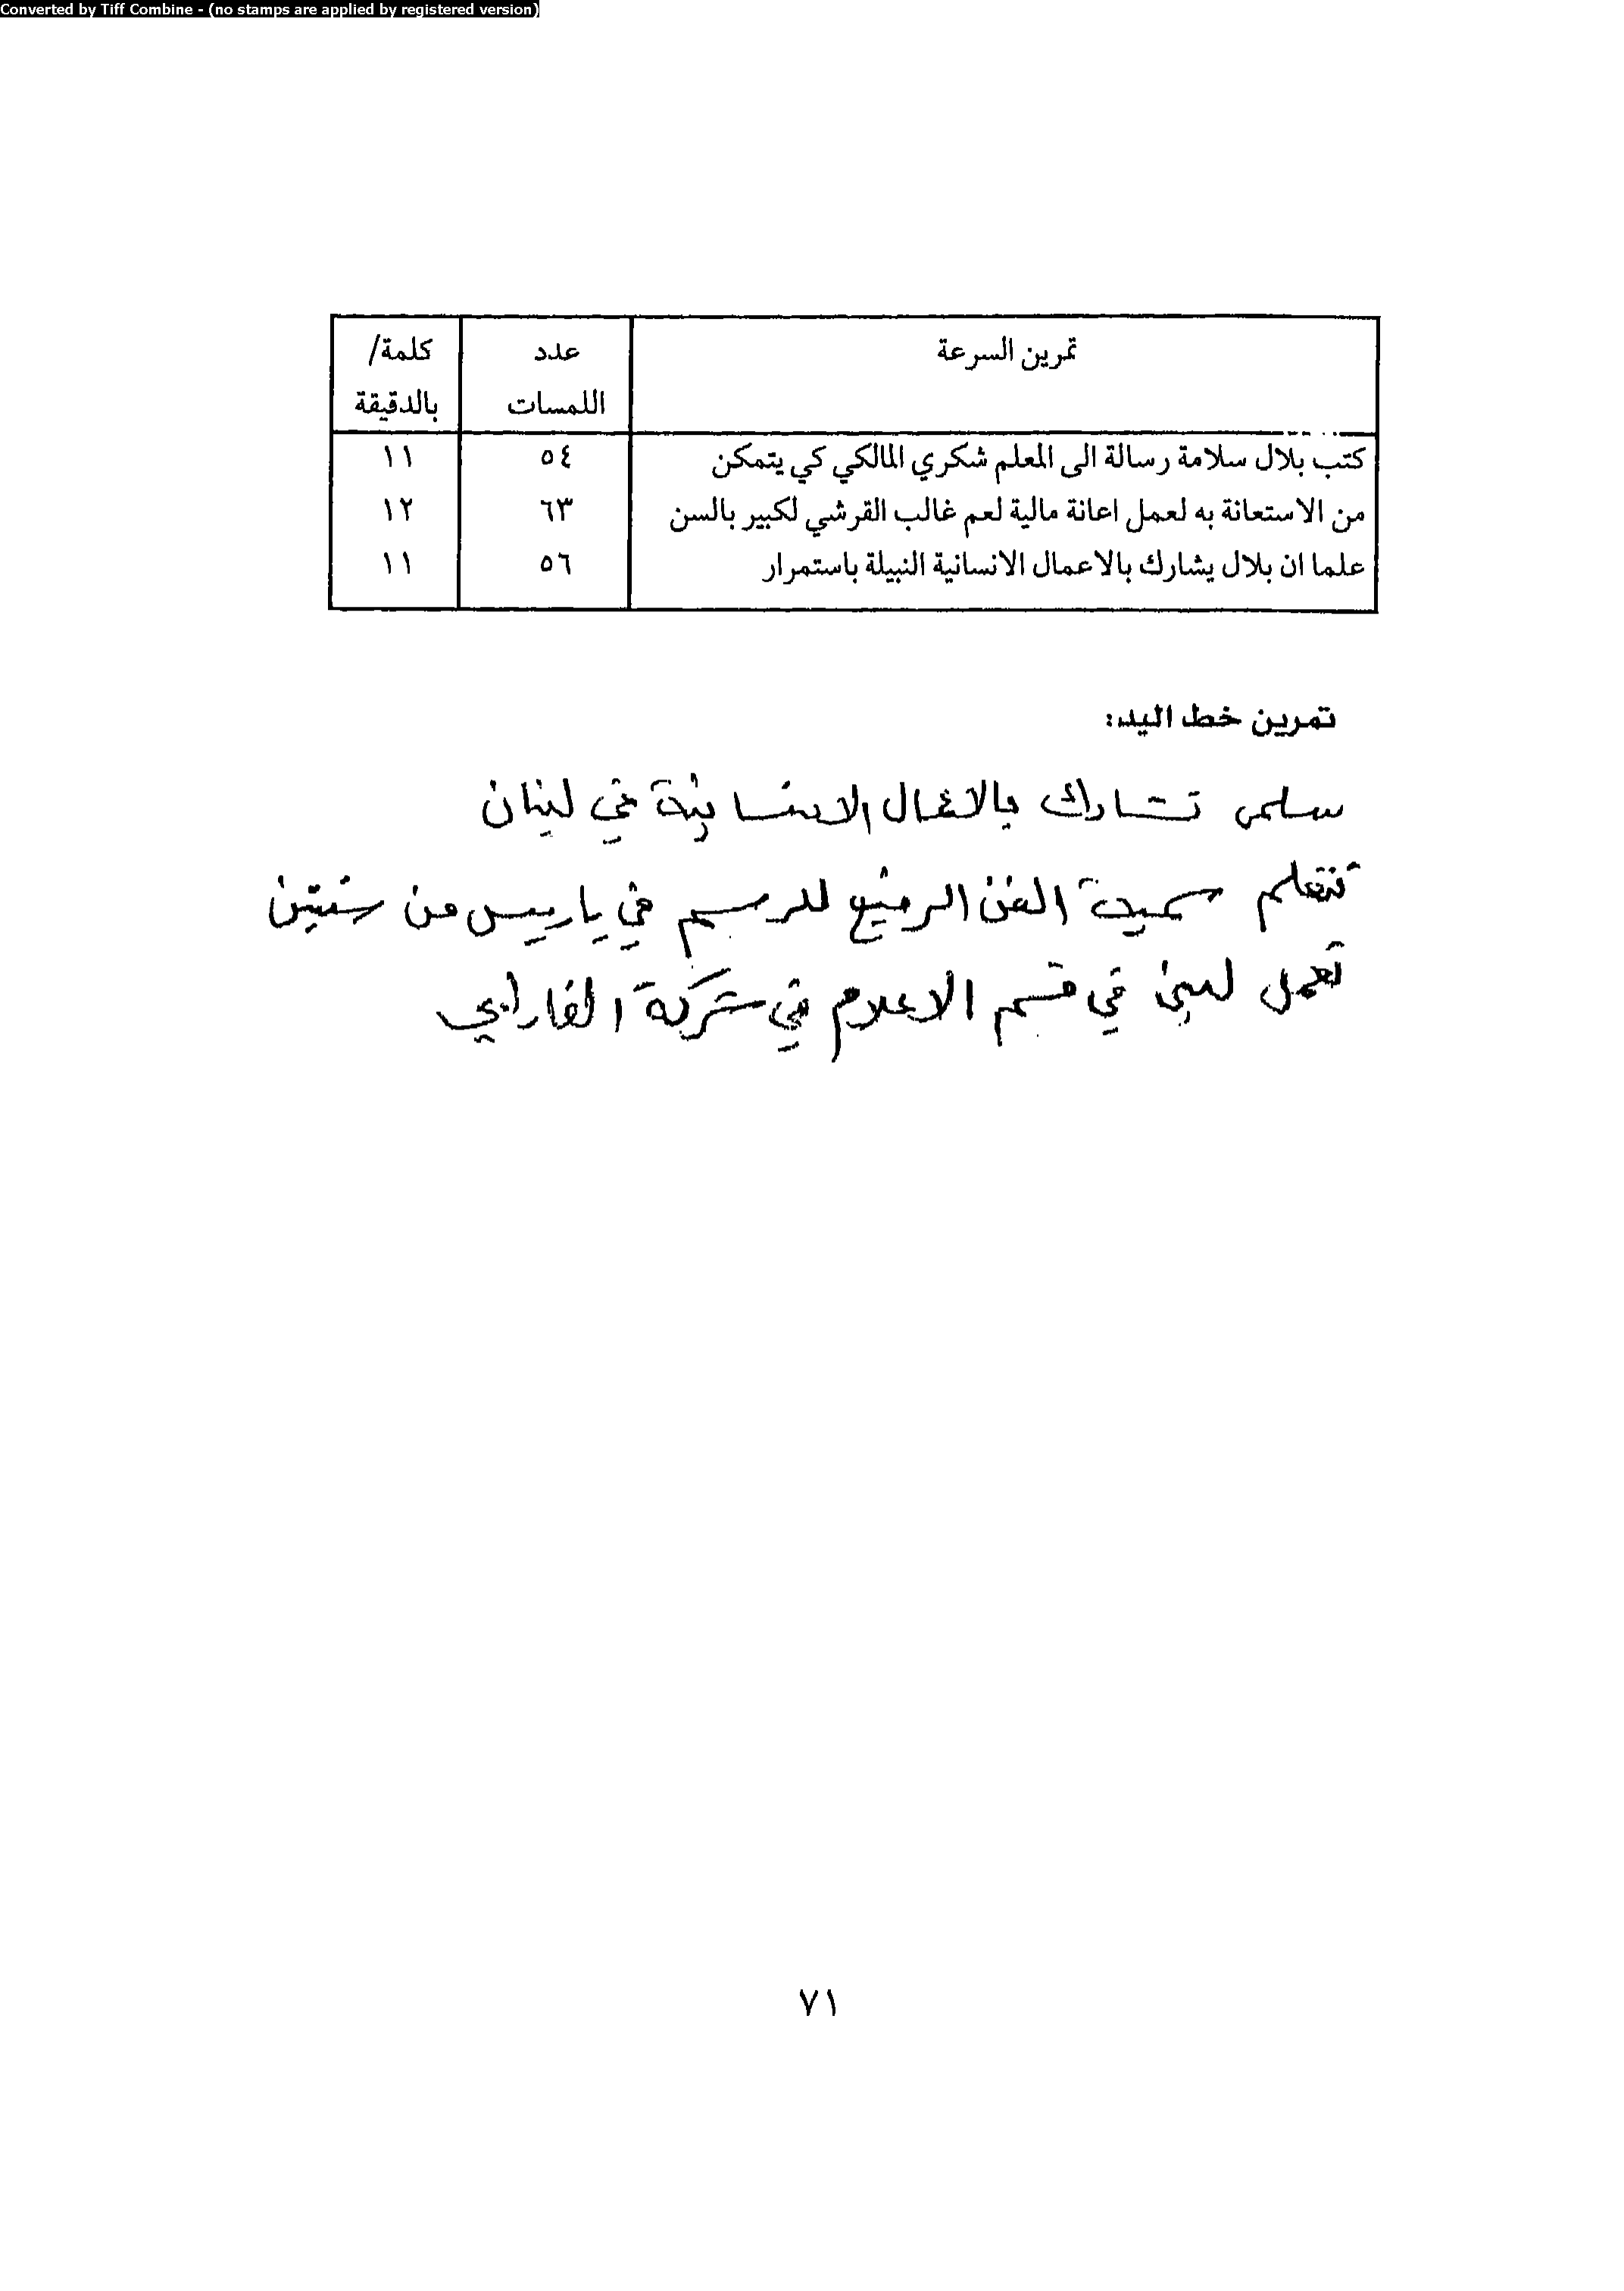 Converted by Tiff Combine - (no stamps are applied by registered version)
تمرين السرعة عدد اللمسات كلمة/ بالدقيقة
كتب بلال سلامة رسالة الى المعلم شكري المالكي كي يتمكن ٥٤ ١١
من الاستعانة به لعمل اعانة مالية لعم غالب القرشي لكبير بالسن ٦٣ ١٢
علما ان بلال يشارك بالاعمال الانسانية النبيلة باستمرار ٥٦ ١١
تمرين خط اليد:
سلمى تشارك بالاعمال الانسانية في لبنان
تتعلم سميرة الفن الرفيع للرسم في باريس من سنتين
تعمل لبنى في قسم الاعلام في شركة الفارابي
٧١